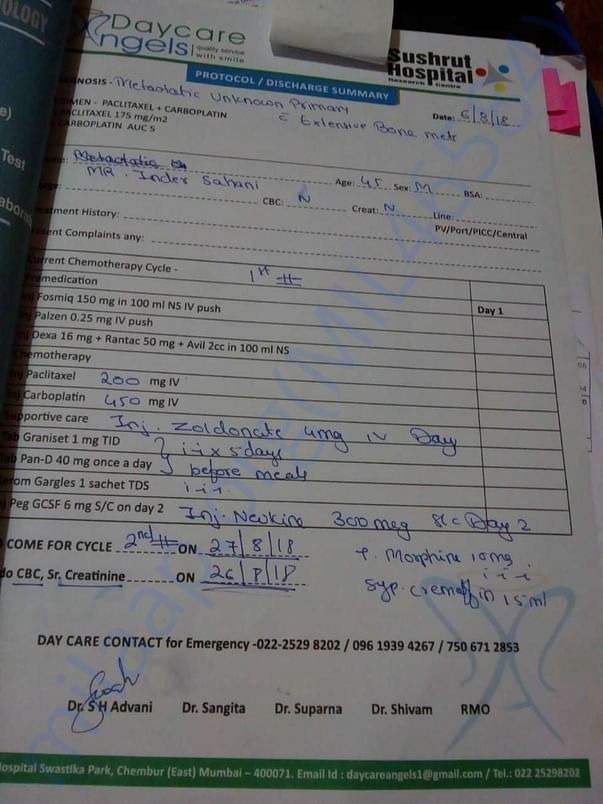 OLOGY
e)
Test
abor
Daycare
ngels
quality service
with smile
Sushrut
Hospital
Research Centre
PROTOCOL / DISCHARGE SUMMARY
GNOSIS - Metastatic Unknown Primary
c̄ Extensive Bone mets
IMEN - PACLITAXEL + CARBOPLATIN
PACLITAXEL 175 mg/m2
CARBOPLATIN AUC 5
Date: 6/8/18
MR. Inder Sahani Age: 45 Sex: M BSA:
age: CBC: N Creat: N Line:
PV/Port/PICC/Central
atment History:
sent Complaints any:
urrent Chemotherapy Cycle - 1st #
remedication
Day 1
nj Fosmiq 150 mg in 100 ml NS IV push
nj Palzen 0.25 mg IV push
nj Dexa 16 mg + Rantac 50 mg + Avil 2cc in 100 ml NS
hemotherapy
nj Paclitaxel 200 mg IV
nj Carboplatin 450 mg IV
upportive care Inj. Zoldonate 4mg IV Day
ab Graniset 1 mg TID 1-1 x 5days
ab Pan-D 40 mg once a day before meals
erom Gargles 1 sachet TDS 1-1-1
j Peg GCSF 6 mg S/C on day 2 Inj. Neukine 300mcg S/c Day 2
COME FOR CYCLE 2nd # ON 27/8/18
T. Morphine 10mg
1-1-1
do CBC, Sr. Creatinine ON 26/8/18
Syp. Cremaffin 15ml
DAY CARE CONTACT for Emergency -022-2529 8202 / 096 1939 4267 / 750 671 2853
Dr. S H Advani Dr. Sangita Dr. Suparna Dr. Shivam RMO
ospital Swastika Park, Chembur (East) Mumbai – 400071. Email Id : daycareangels1@gmail.com / Tel.: 022 25298202